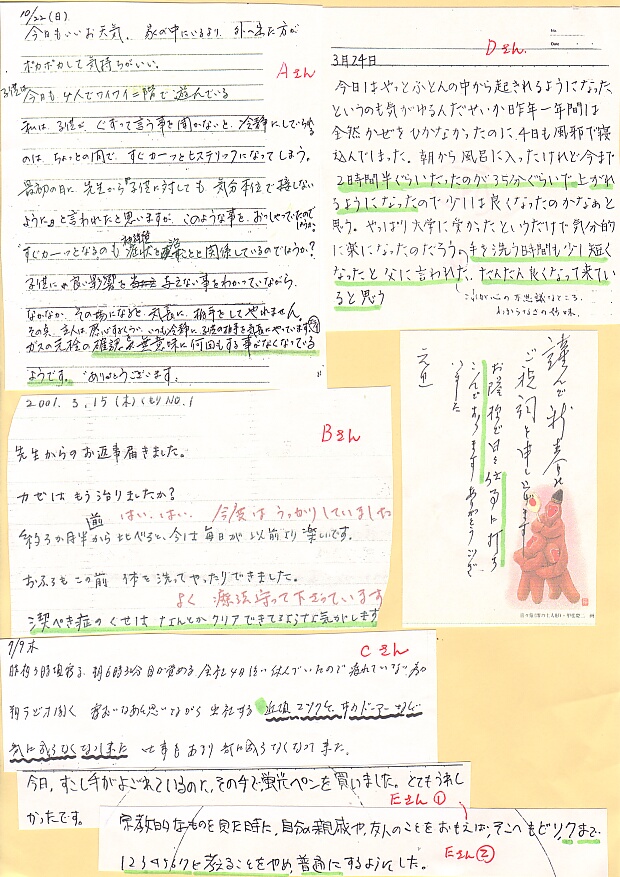 10/22(日)
今日もいいお天気。家の中にいるより、外へ出た方が
ポカポカして気持ちがいい。
Aさん
子供は
今日も4人でワイワイ二階で遊んでいる
私は、子供が、ぐずって言う事を聞かないと、冷静にしていられる
のは、ちょっとの間で、すぐカーっとヒステリックになってしまう。
最初の日に、先生から『子供に対しても、気分本位で接しない
ように。』と言われたと思いますが、このような事を、おっしゃっていたので
しょうか?
すぐカーっとなるのも
症状を
と関係しているのでしょうか?
子供に、良い影響を
与えない事をわかっていながら、
なかなか、その場になると、気長に、相手をしてやれません。
その点、主人は感心するくらい、いつも冷静に、子供の相手を気長にやっています
ガスの元栓の確認
無意味に何回もする事がなくなっている
ようです。ありがとうございます。
Dさん
No.
Date
3月24日
今日はやっとふとんの中から起きれるようになった
というのも気がゆるんだせいか昨年一年間は
全然かぜをひかなかったのに、4日も風邪で寝
込んでしまった。朝から風呂に入ったけれど今まで
2時間半ぐらいだったのが35分ぐらいで上がれ
るようになったので少しは良くなったのかなぁと
思う。やっぱり大学に受かったというだけで気分的
に楽になったのだろう。手を洗う時間も少し短く
なったと父に言われた。だんだん良くなって来てい
ると思う
これが心の不思議なところ、
2001.3.15(木)くもり NO.1
Bさん
先生からのお返事届きました。
カゼはもう治りましたか?
はい、はい。今度はうっかりしていました
約3か月半
前
から比べると、今は毎日が以前より楽しいです。
おふろもこの前体を洗ってやったりできました。
よく療法守って下さっています
潔ぺき症のくせはなんとかクリアできてるような気がします
謹んで新春の
ご祝詞を申し上げます
お陰様で日々仕事に打ち
こんでおります ありがとうござ
いました
元旦
7/9 木
Cさん
昨夜
時頃寝る、朝6時30分目が覚める 会社4日
休んでいたので
朝ラジオ聞く
思いながら出社する 近頃
気に成らなくなって来た
仕事もあまり気に成らなくなって来た。
今日、すこし手がよごれているのに、その手で、蛍光ペンを買いました。とてもうれし
かったです。
Eさん①
宗教的なものを見た時に、自分の親戚や、友人のことをおもえば、そこへもどり、クまで
1234567と考えることをやめ、普通にするようにした。
Eさん②